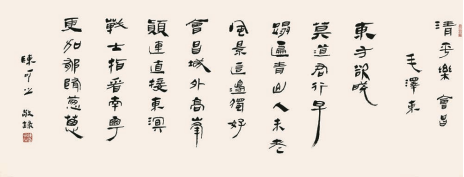 清平樂 會昌
毛澤東
東方欲曉
莫道君行早
踏遍青山人未老
風景這邊獨好
會昌城外高峯
顛連直接東溟
戰士指看南粵
更加郁郁蔥蔥
敬錄